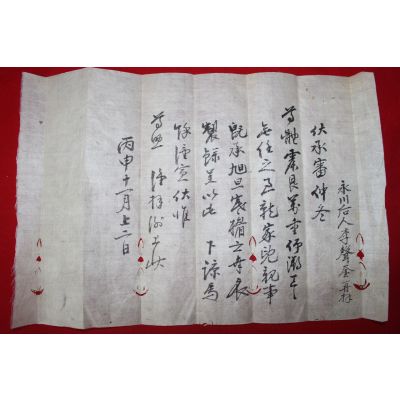 永川后人李聲奎再拜
伏承審仲冬
尊體 萬重仰溯
無任之至就家兒親事
旣承旭旦 衣
製錄呈以此 下諒焉
餘 宣伏惟
尊照 謹拜謝上狀
丙申十一月十二日